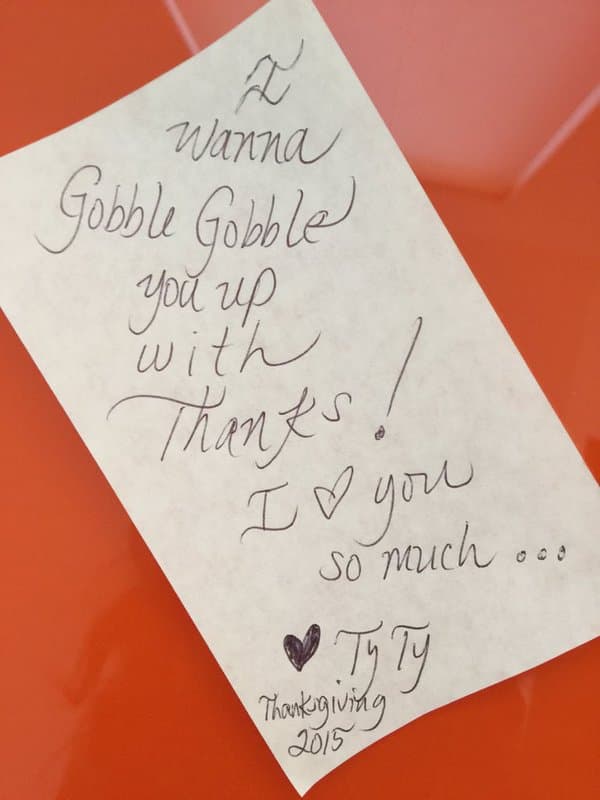 I
wanna
Gobble Gobble
you up
with
Thanks!
I ♡ you
so much ...
♥ Ty Ty
Thanksgiving
2015